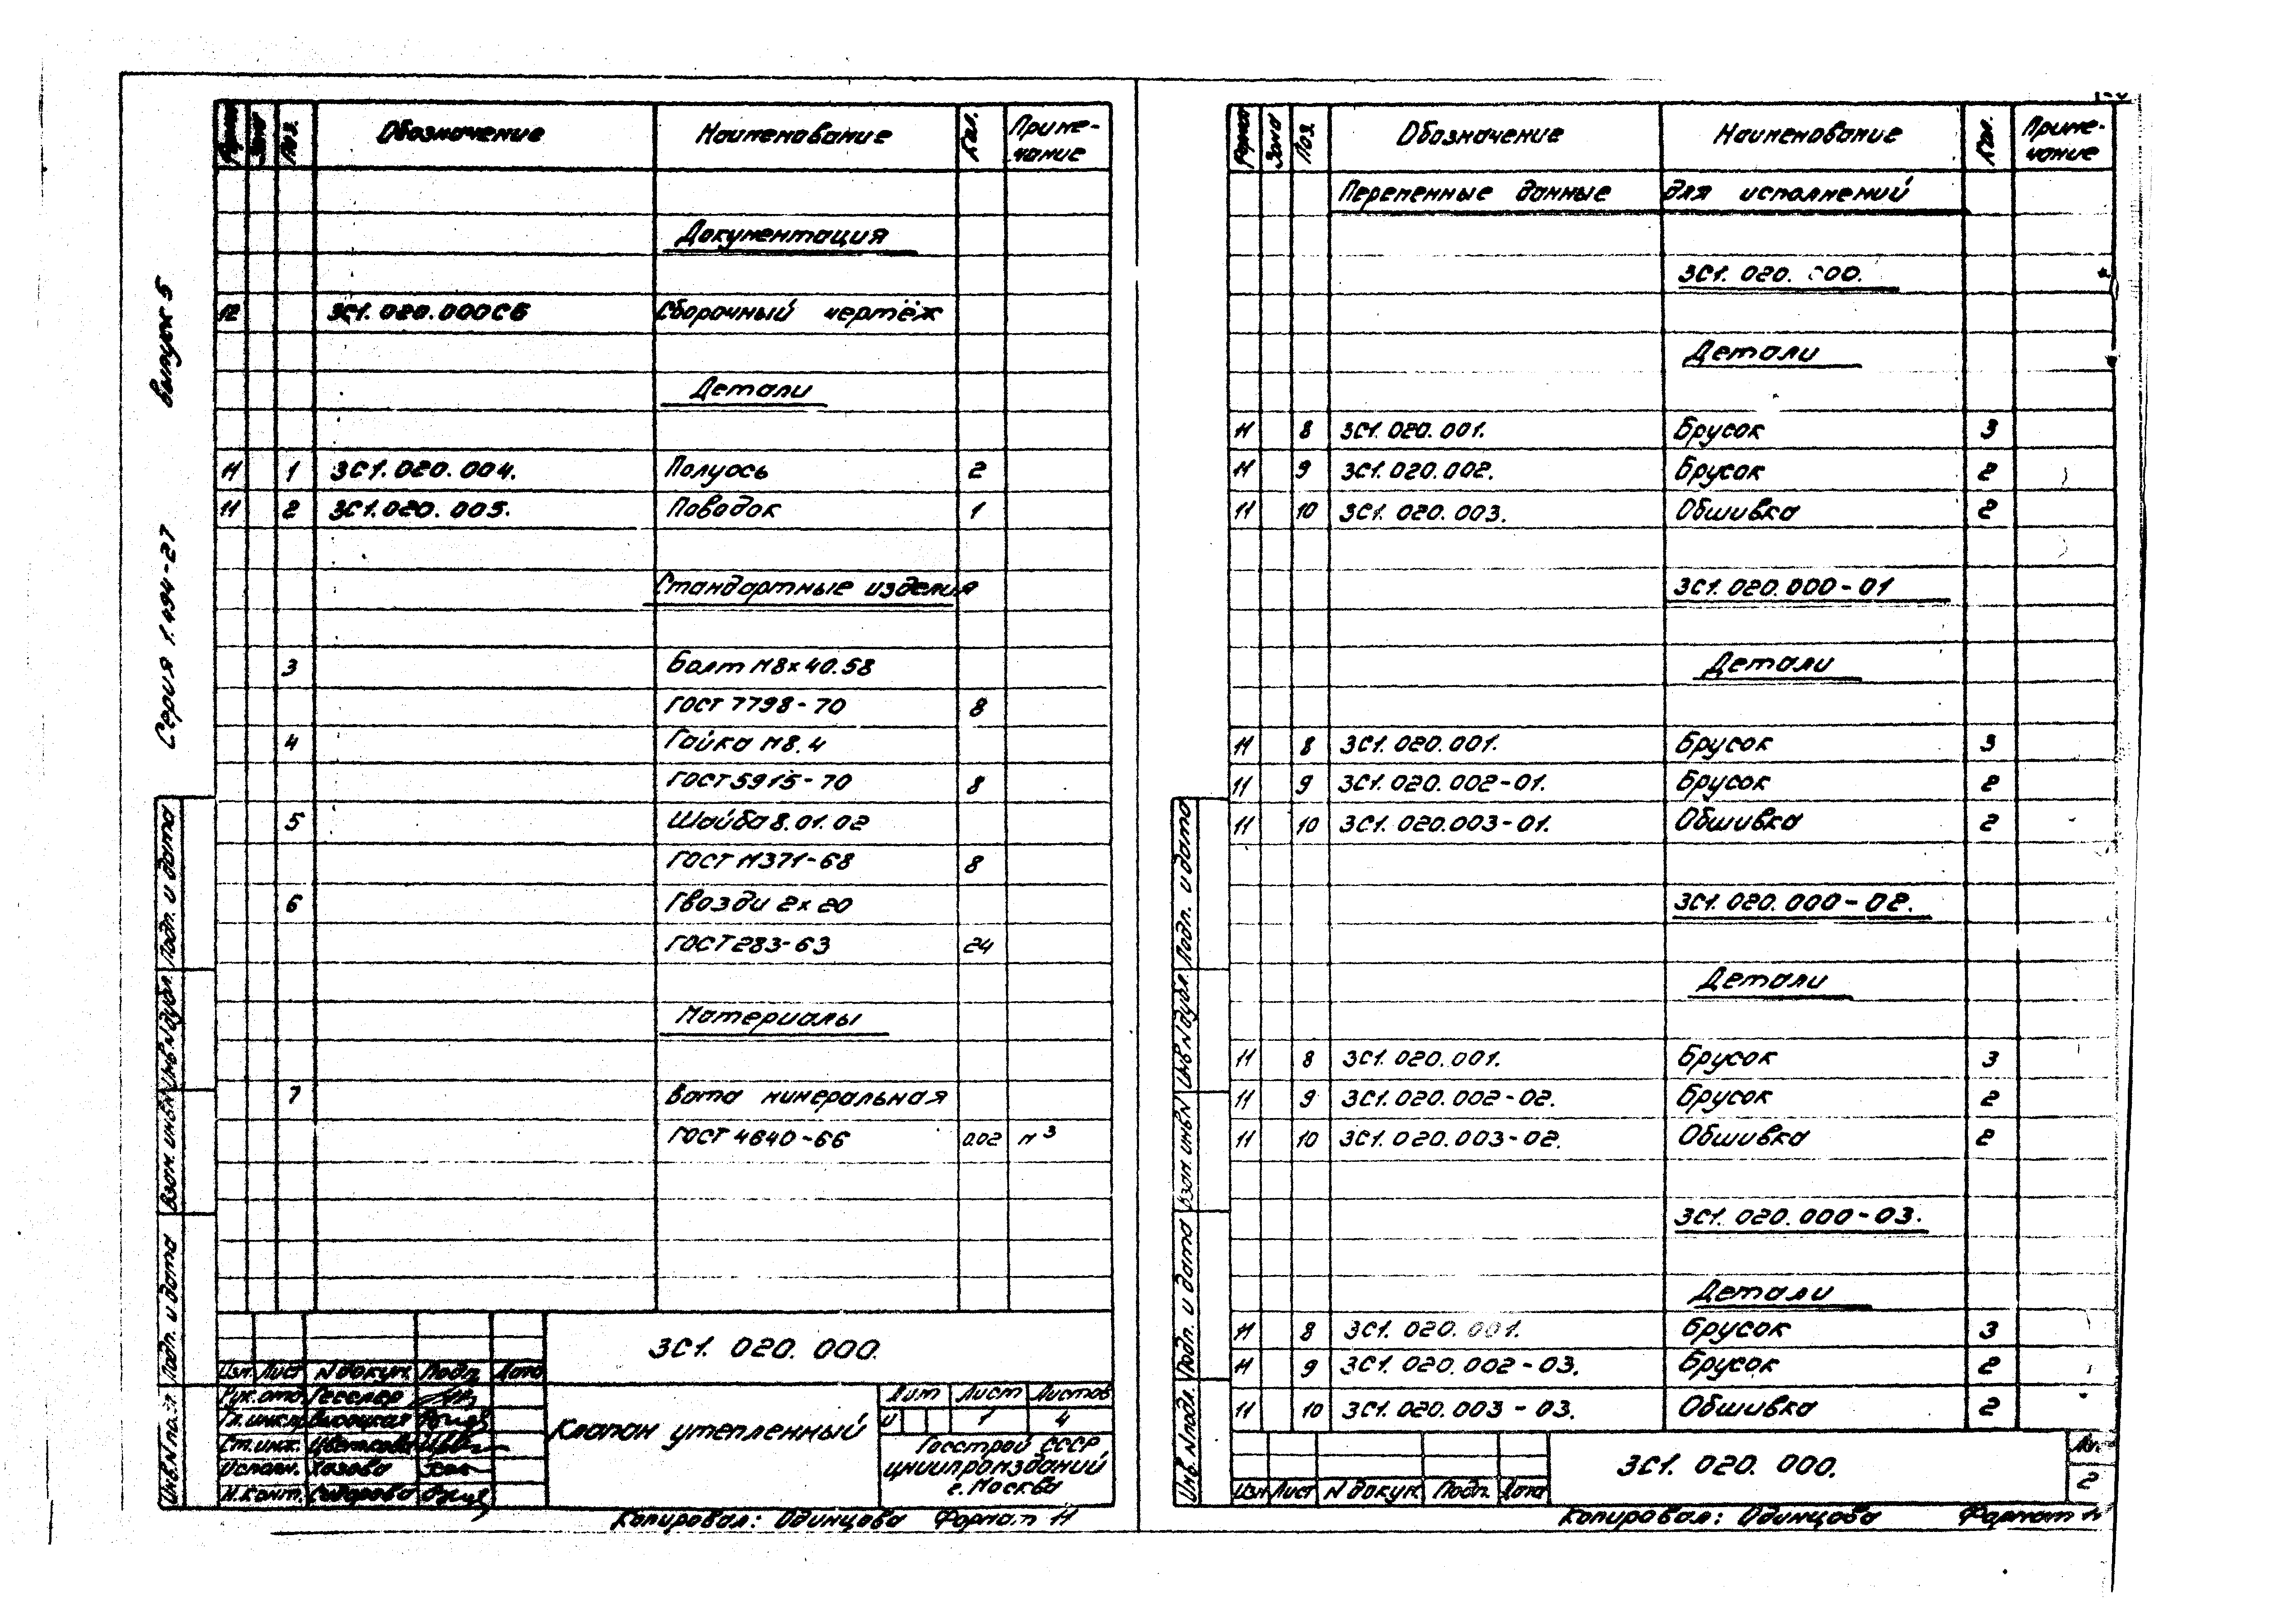 Выпуск 5
Серия 1.494-27
Формат Зона Поз. Обозначение Наименование Кол. Приме-
чание
Документация
12 3С1.020.000СБ Сборочный чертёж
Детали
11 1 3С1.020.004. Полуось 2
11 2 3С1.020.005. Поводок 1
Стандартные изделия
3 Болт М8×40.58
ГОСТ 7798-70 8
4 Гайка М8.4
ГОСТ 5915-70 8
5 Шайба 8.01.02
ГОСТ 11371-68 8
6 Гвозди 2×20
ГОСТ 283-63 24
Материалы
7 Вата минеральная
ГОСТ 4640-66 0.02 м³
Подп. и дата
Инв.N дубл.
Взам. инв.N
Подп. и дата
Инв.N подл.
3С1. 020. 000.
Изм. Лист N докум. Подп. Дата
Рук.отд. Гесслер
Гл.инж.пр.
Ст.инж. Цветкова
Исполн. Хазова
Н.конт. Сидорова
Клапан утепленный
Лит Лист Листов
И 1 4
Госстрой СССР
ЦНИИПРОМЗДАНИЙ
г. Москва
Копировал: Одинцова Формат 11
Формат Зона Поз. Обозначение Наименование Кол. Приме-
чание
Переменные данные для исполнений
3С1. 020. 000.
Детали
11 8 3С1. 020. 001. Брусок 3
11 9 3С1. 020. 002. Брусок 2
11 10 3С1. 020. 003. Обшивка 2
3С1.020.000-01
Детали
11 8 3С1. 020. 001. Брусок 3
11 9 3С1. 020. 002-01. Брусок 2
11 10 3С1. 020.003-01. Обшивка 2
3С1.020.000-02.
Детали
11 8 3С1. 020.001. Брусок 3
11 9 3С1. 020.002-02. Брусок 2
11 10 3С1.020.003-02. Обшивка 2
3С1. 020.000-03.
Детали
11 8 3С1. 020. 001. Брусок 3
11 9 3С1. 020.002-03. Брусок 2
11 10 3С1.020.003-03. Обшивка 2
Подп. и дата
Инв.N дубл.
Взам. инв.N
Подп. и дата
Инв.N подл.
3С1. 020. 000.
Изм Лист N докум. Подп. Дата
Ли.
2
Копировал: Одинцова Формат 11